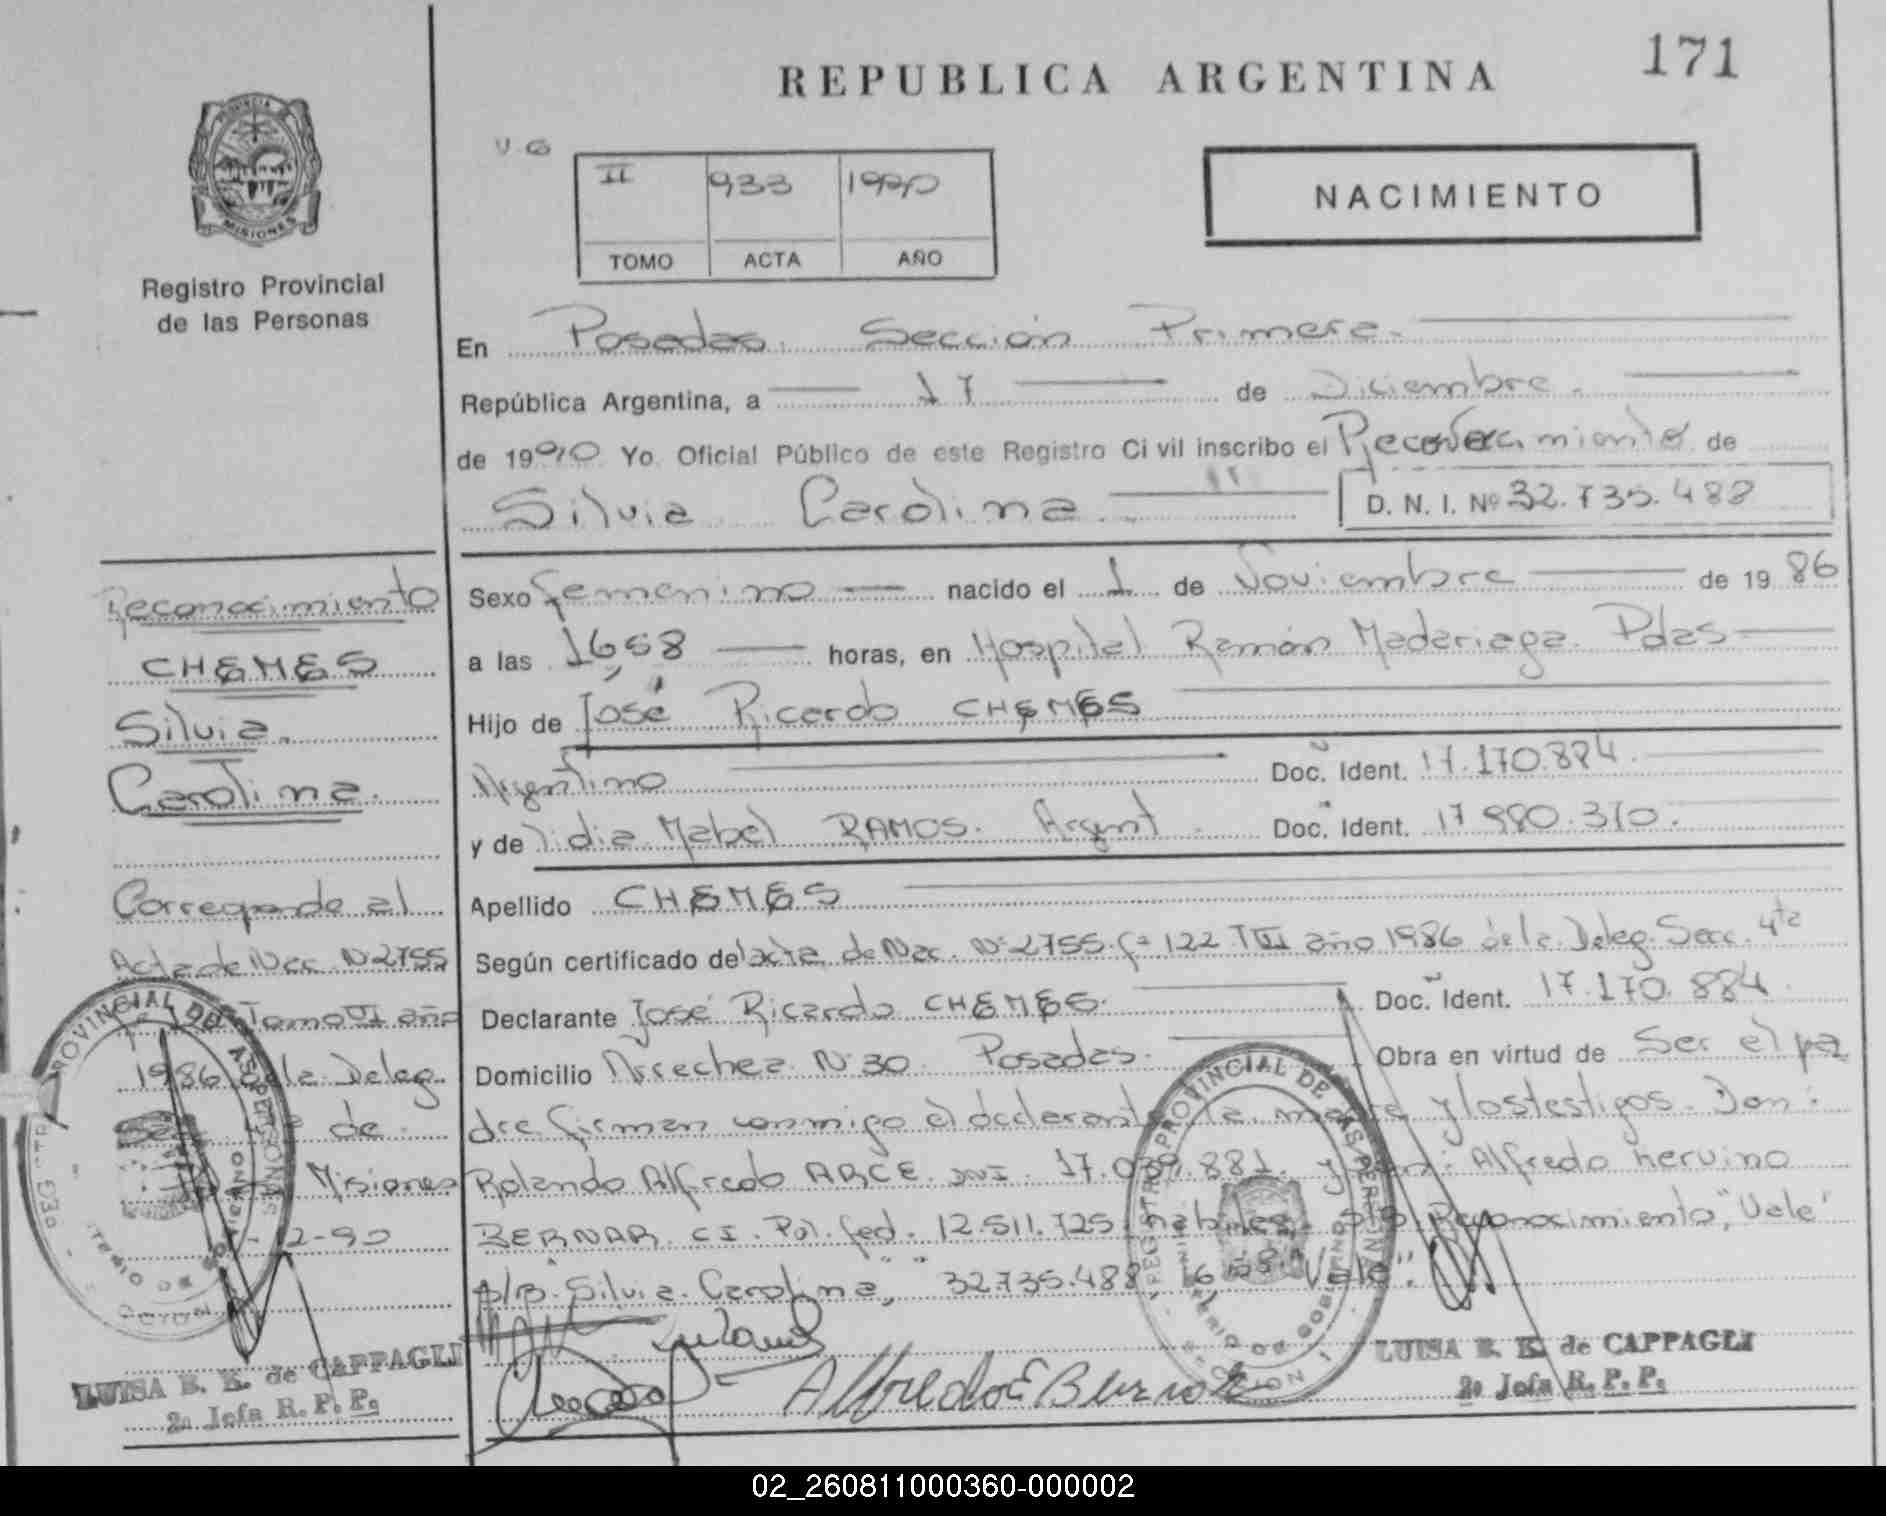 171
REPUBLICA ARGENTINA
PROVINCIA
MISIONES
Registro Provincial
de las Personas
II 933 1990
TOMO ACTA AÑO
NACIMIENTO
En Posadas. Sección Primera.
República Argentina, a 17 de Diciembre.
de 1990 Yo Oficial Público de este Registro Civil inscribo el Reconocimiento de
Silvia Carolina D. N. I. Nº 32.735.488
Reconocimiento
CHEMES
Silvia.
Carolina.
Corresponde al
Acta de Nac. N 2755
Tomo VI año
1986 de la Deleg.
de
Misiones
12-90
LUISA B. K. de CAPPAGLI
2a Jefa R. P. P.
Sexo femenino nacido el 1 de Noviembre de 1986
a las 16,58 horas, en Hospital Ramón Madariaga. Pdas
Hijo de José Ricardo CHEMES
Argentino Doc. Ident. 17.170.884.
y de Lidia Mabel RAMOS. Argent. Doc. Ident. 17 980.310.
Apellido CHEMES
Según certificado del acta de Nac. Nº 2755. fº 122 T VI año 1986 de la Deleg. Secc. 4ta
Declarante José Ricardo CHEMES. Doc. Ident. 17.170.884
Domicilio Arrechea Nº 30. Posadas. Obra en virtud de Ser el pa
dre firman conmigo el declarante la madre y los testigos. Don:
Rolando Alfredo ARCE. DNI. 17.039.881. y Don: Alfredo
BERNAR. CI. Pol. fed. 12.511.725. S/B. Reconocimiento, "Vale"
S/B. Silvia. Carolina, 32.735.488, "Vale".
REGISTRO PROVINCIAL DE LAS PERSONAS
LUISA B. K. de CAPPAGLI
2a Jefa R. P. P.
02_260811000360-000002